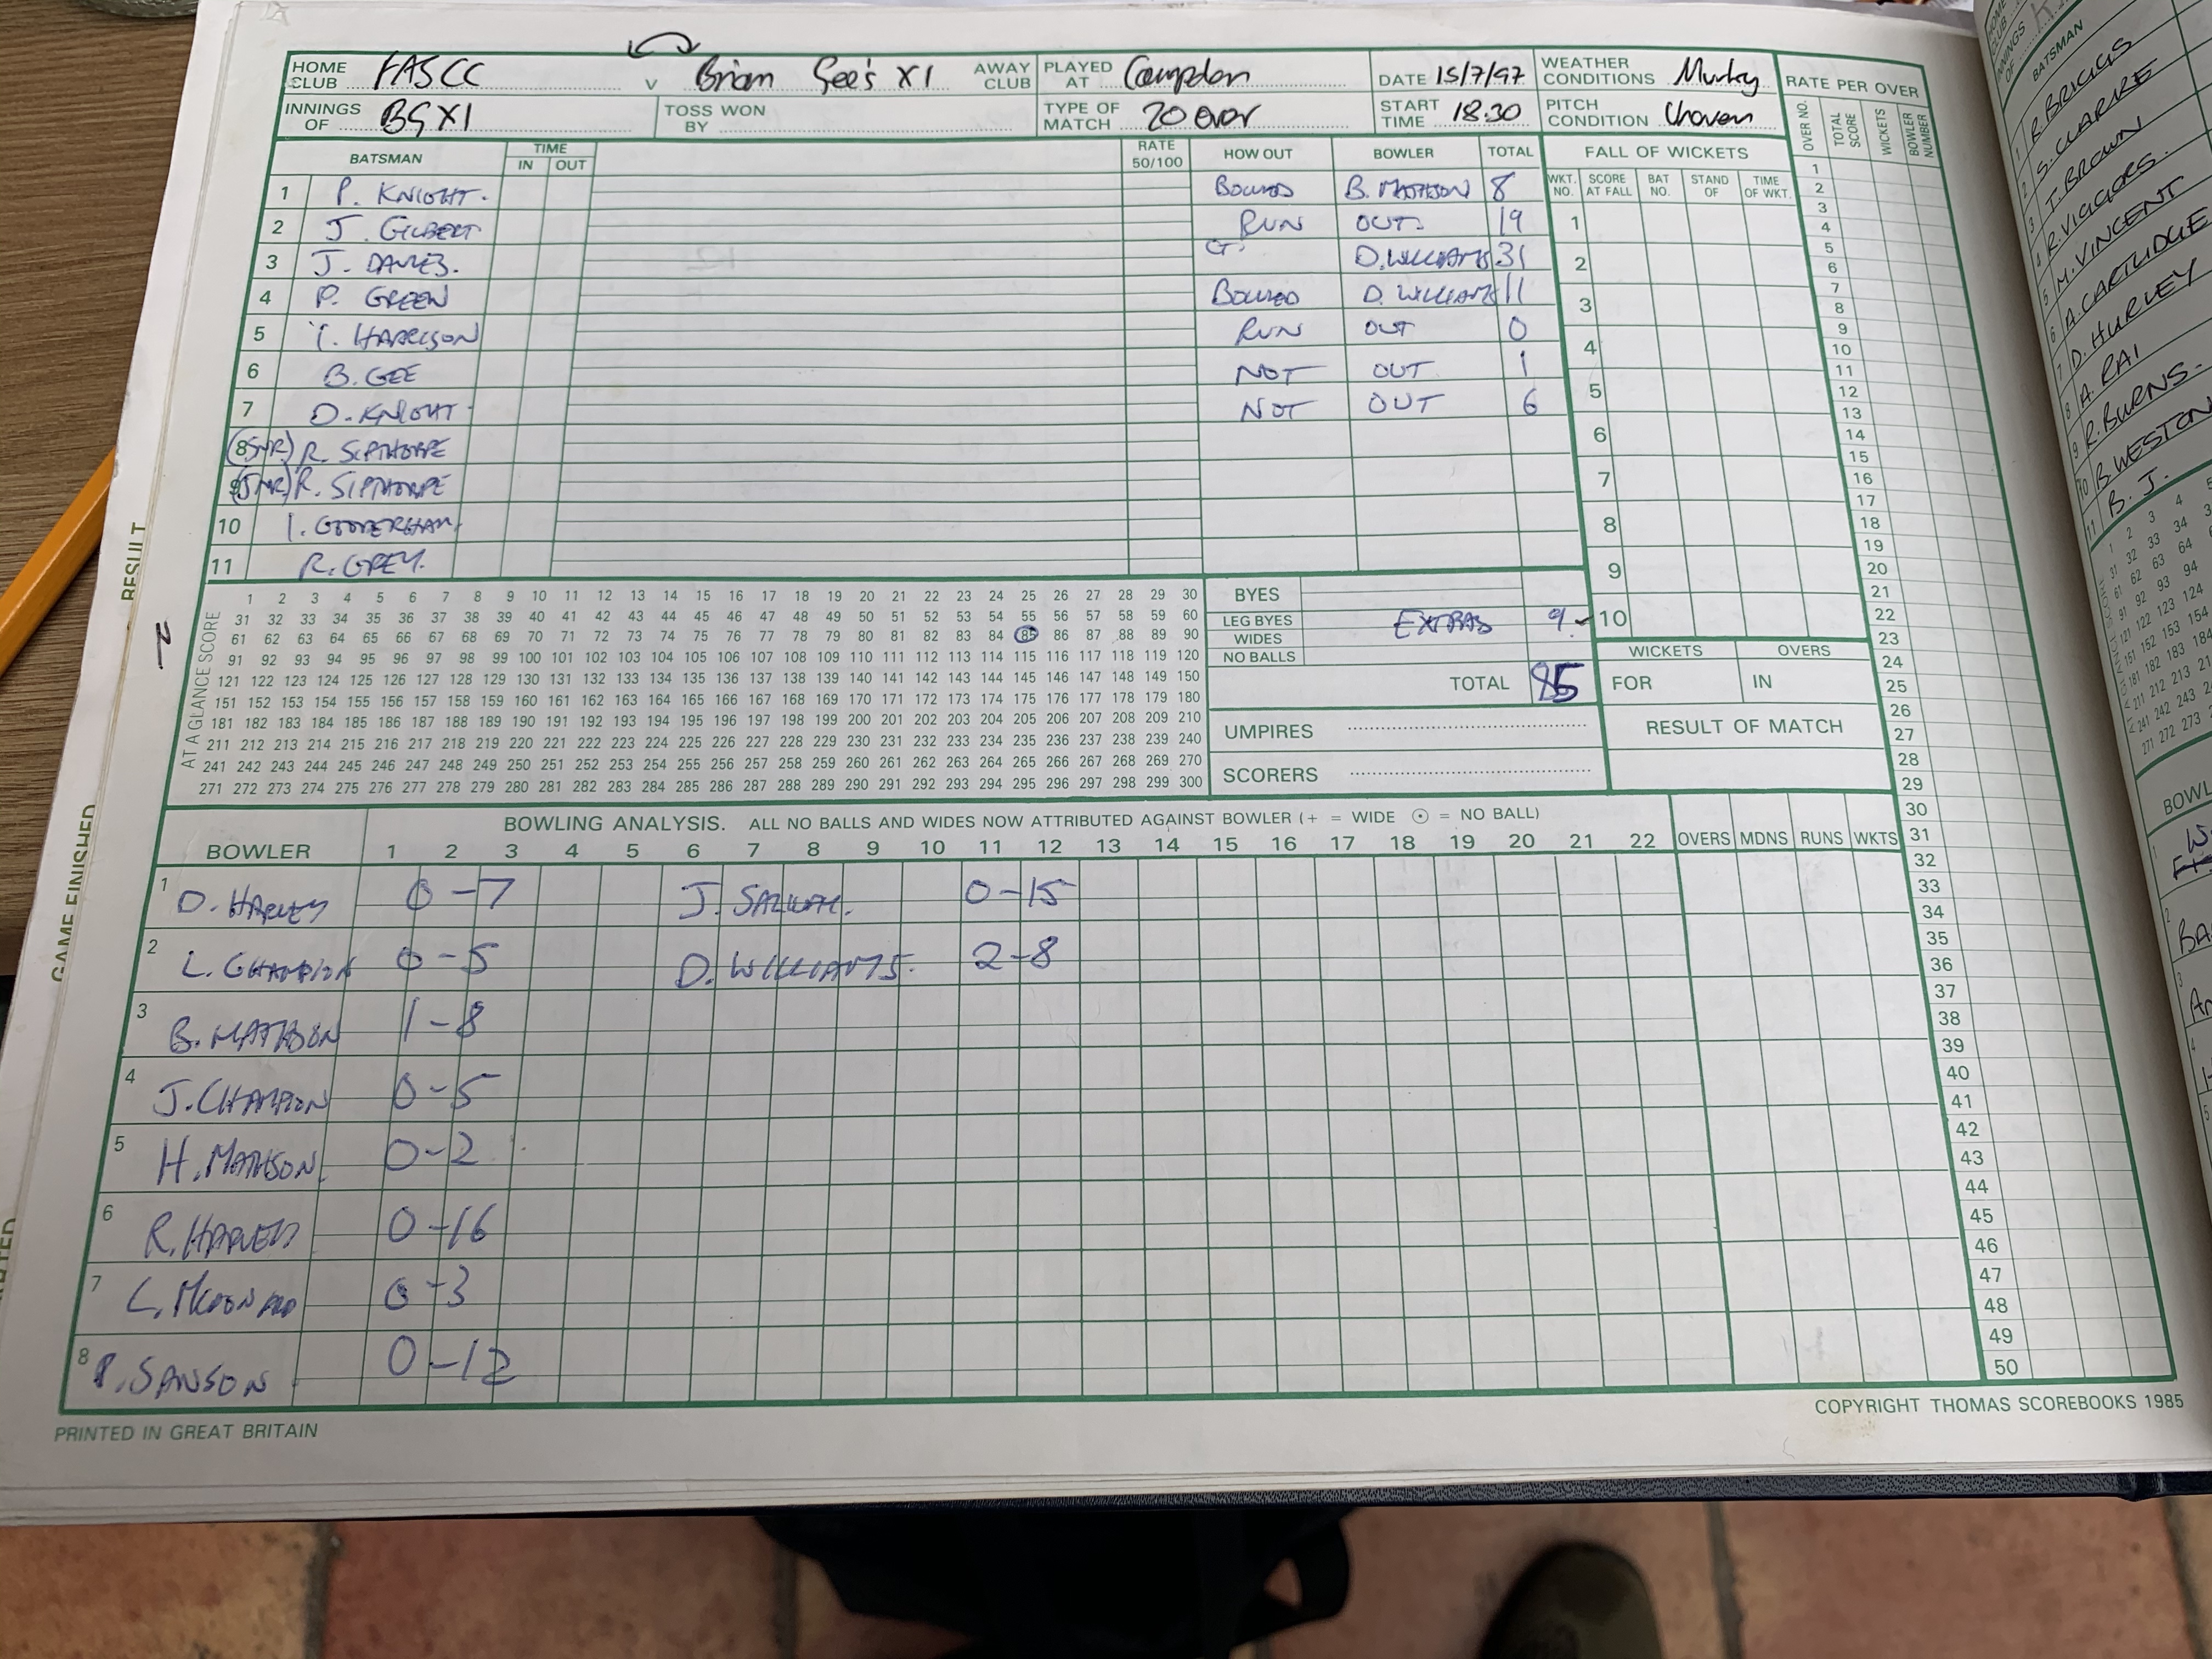 HOME CLUB FASCC v Brian Gee's XI AWAY CLUB PLAYED AT Campden DATE 15/7/97 WEATHER CONDITIONS Murky RATE PER OVER
INNINGS OF BGXI TOSS WON BY TYPE OF MATCH 20 over START TIME 18.30 PITCH CONDITION
OVER NO. TOTAL SCORE WICKETS BOWLER NUMBER
BATSMAN TIME IN OUT RATE 50/100 HOW OUT BOWLER TOTAL FALL OF WICKETS
WKT. NO. SCORE AT FALL BAT NO. STAND OF TIME OF WKT.
1 P. KNIGHT. BOWLED B. MATHSON 8
2 J. GILBERT RUN OUT. 19
3 J. DAVIES. CT. D. WILLIAMS 31
4 P. GREEN BOWLED D. WILLIAMS 11
5 HARRISON RUN OUT 0
6 B. GEE NOT OUT 1
7 D. KNIGHT. NOT OUT 6
8 (SNR.) R. SIPTHORPE
9 (JNR.) R. SIPTHORPE
10 I. GOODERHAM
11 R. GREY.
1
2
3
4
5
6
7
8
9
10
AT A GLANCE SCORE
1 2 3 4 5 6 7 8 9 10 11 12 13 14 15 16 17 18 19 20 21 22 23 24 25 26 27 28 29 30
31 32 33 34 35 36 37 38 39 40 41 42 43 44 45 46 47 48 49 50 51 52 53 54 55 56 57 58 59 60
61 62 63 64 65 66 67 68 69 70 71 72 73 74 75 76 77 78 79 80 81 82 83 84 85 86 87 88 89 90
91 92 93 94 95 96 97 98 99 100 101 102 103 104 105 106 107 108 109 110 111 112 113 114 115 116 117 118 119 120
121 122 123 124 125 126 127 128 129 130 131 132 133 134 135 136 137 138 139 140 141 142 143 144 145 146 147 148 149 150
151 152 153 154 155 156 157 158 159 160 161 162 163 164 165 166 167 168 169 170 171 172 173 174 175 176 177 178 179 180
181 182 183 184 185 186 187 188 189 190 191 192 193 194 195 196 197 198 199 200 201 202 203 204 205 206 207 208 209 210
211 212 213 214 215 216 217 218 219 220 221 222 223 224 225 226 227 228 229 230 231 232 233 234 235 236 237 238 239 240
241 242 243 244 245 246 247 248 249 250 251 252 253 254 255 256 257 258 259 260 261 262 263 264 265 266 267 268 269 270
271 272 273 274 275 276 277 278 279 280 281 282 283 284 285 286 287 288 289 290 291 292 293 294 295 296 297 298 299 300
BYES
LEG BYES EXTRAS 9
WIDES
NO BALLS
TOTAL 85
UMPIRES
SCORERS
WICKETS OVERS
FOR IN
RESULT OF MATCH
BOWLING ANALYSIS. ALL NO BALLS AND WIDES NOW ATTRIBUTED AGAINST BOWLER (+ = WIDE ⊙ = NO BALL)
BOWLER 1 2 3 4 5 6 7 8 9 10 11 12 13 14 15 16 17 18 19 20 21 22 OVERS MDNS RUNS WKTS
1 D. HARVEY 0-7 J. 0-15
2 L. CHAMPION 0-5 D. WILLIAMS. 2-8
3 B. MATHSON 1-8
4 J. CHAMPION 0-5
5 H. MATHSON 0-2
6 R. HARVEY 0-16
7 L. MCDONALD 0-3
8 P. SANSON 0-12
1
2
3
4
5
6
7
8
9
10
11
12
13
14
15
16
17
18
19
20
21
22
23
24
25
26
27
28
29
30
31
32
33
34
35
36
37
38
39
40
41
42
43
44
45
46
47
48
49
50
PRINTED IN GREAT BRITAIN
COPYRIGHT THOMAS SCOREBOOKS 1985
RESULT
GAME FINISHED
BATSMAN
1 R. BRIGGS
2 S. CLARKE
3 T. BROWN
4 R. VIGGORS.
5 M. VINCENT
6 A. CARTLIDGE
7 D. HURLEY
8 A. RAI
9 R. BURNS.
10 B. WESTON
11 B. J.